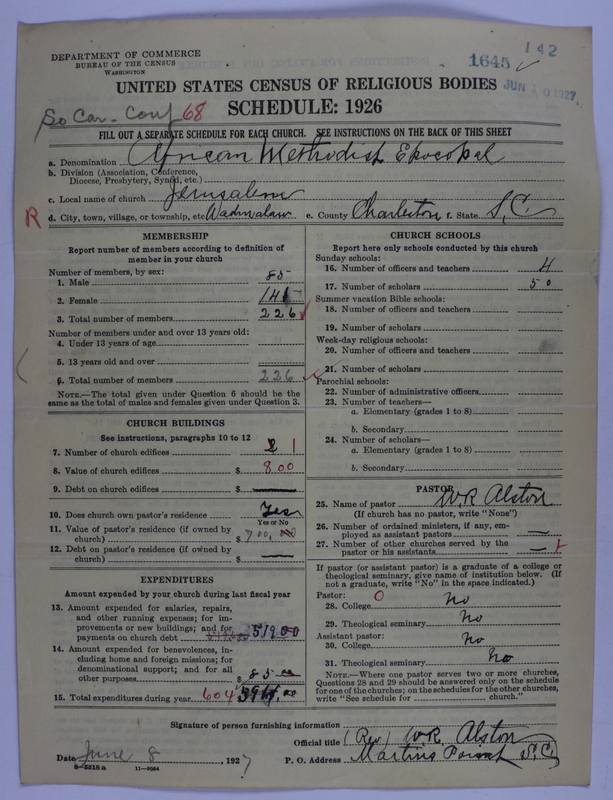 142
1645
JUN 10 1927
DEPARTMENT OF COMMERCE
BUREAU OF THE CENSUS
WASHINGTON
UNITED STATES CENSUS OF RELIGIOUS BODIES
SCHEDULE: 1926
So Car. Conf 68
FILL OUT A SEPARATE SCHEDULE FOR EACH CHURCH. SEE INSTRUCTIONS ON THE BACK OF THIS SHEET
a. Denomination African Methodist Epocopal
b. Division (Association, Conference,
Diocese, Presbytery, Synod, etc.)
c. Local name of church Jerusalem
R d. City, town, village, or township, etc Wadmalaw e. County Charleston f. State S, C.
MEMBERSHIP
Report number of members according to definition of
member in your church
Number of members, by sex:
1. Male 85
2. Female 141
3. Total number of members 226
Number of members under and over 13 years old:
4. Under 13 years of age
5. 13 years old and over
6. Total number of members 226
NOTE.—The total given under Question 6 should be
the same as the total of males and females given under Question 3.
CHURCH BUILDINGS
See instructions, paragraphs 10 to 12
7. Number of church edifices 1
8. Value of church edifices $ 800
9. Debt on church edifices $ —
10. Does church own pastor's residence Yes
Yes or No
11. Value of pastor's residence (if owned by
church) $ 700,00
12. Debt on pastor's residence (if owned by
church) $ —
EXPENDITURES
Amount expended by your church during last fiscal year
13. Amount expended for salaries, repairs,
and other running expenses; for im-
provements or new buildings; and for
payments on church debt 519.00
14. Amount expended for benevolences, in-
cluding home and foreign missions; for
denominational support; and for all
other purposes $ 85.00
15. Total expenditures during year 604
CHURCH SCHOOLS
Report here only schools conducted by this church
Sunday schools:
16. Number of officers and teachers 4
17. Number of scholars 50
Summer vacation Bible schools:
18. Number of officers and teachers
19. Number of scholars
Week-day religious schools:
20. Number of officers and teachers
21. Number of scholars
Parochial schools:
22. Number of administrative officers
23. Number of teachers—
a. Elementary (grades 1 to 8)
b. Secondary
24. Number of scholars—
a. Elementary (grades 1 to 8)
b. Secondary
PASTOR
25. Name of pastor W R Alston
(If church has no pastor, write "None")
26. Number of ordained ministers, if any, em-
ployed as assistant pastors —
27. Number of other churches served by the
pastor or his assistants —
If pastor (or assistant pastor) is a graduate of a college or
theological seminary, give name of institution below. (If
not a graduate, write "No" in the space indicated.)
Pastor: 0
28. College no
29. Theological seminary No
Assistant pastor:
30. College no
31. Theological seminary no
NOTE.—Where one pastor serves two or more churches,
Questions 28 and 29 should be answered only on the schedule
for one of the churches; on the schedules for the other churches,
write "See schedule for church."
Signature of person furnishing information
Official title (Rev) W R. Alston
Date June 8, 1927 P. O. Address Martins Point S, C.
8—5518 a 11—9054